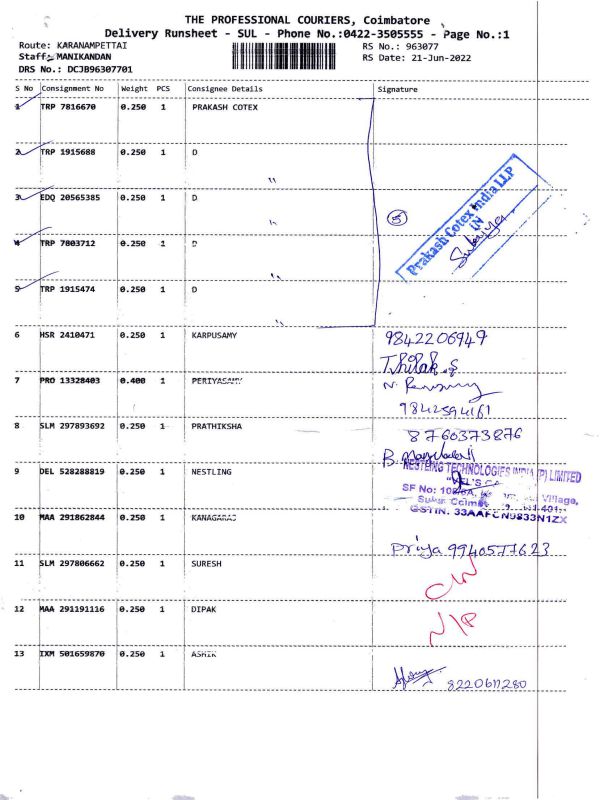 THE PROFESSIONAL COURIERS, Coimbatore
Delivery Runsheet - SUL - Phone No.:0422-3505555 - Page No.:1
Route: KARANAMPETTAI RS No.: 963077
Staff: MANIKANDAN RS Date: 21-Jun-2022
DRS No.: DCJB96307701
S No Consignment No Weight PCS Consignee Details Signature
1 TRP 7816670 0.250 1 PRAKASH COTEX
2 TRP 1915688 0.250 1 D
"
3 EDQ 20565385 0.250 1 D
"
5
Prakash Cotex India LLP
IN
4 TRP 7803712 0.250 1 D
"
5 TRP 1915474 0.250 1 D
"
6 HSR 2410471 0.250 1 KARPUSAMY 9842206949
Thilak.g
7 PRO 13328403 0.400 1 PERIYASAMY
9842594161
8 SLM 297893692 0.250 1 PRATHIKSHA 8760373876
B.
9 DEL 528288819 0.250 1 NESTLING NESTLING TECHNOLOGIES INDIA (P) LIMITED
SF No: Village,
GSTIN. 33AAFCN9833N1ZX
10 MAA 291862844 0.250 1 KANAGARAJ
Priya 9940577623
11 SLM 297806662 0.250 1 SURESH
12 MAA 291191116 0.250 1 DIPAK N/P
13 IXM 501659870 0.250 1 ASHIK
8220611280